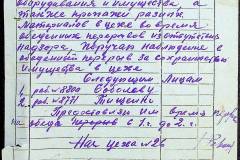 оборудования и имущества, а
также пропажи разных
материалов в цехе во время
обеденных перерывов из отсутствия
надзора. Поручаю наблюдение в
обеденный перерыв за сохранностью
имущества в цехе
Следующим лицам
1. раб №8800 Соболеву
2. раб №8771 Тищенко
Предоставить им время
на обеда перерыв в 1 г. до 2 г.
Нач цеха №26